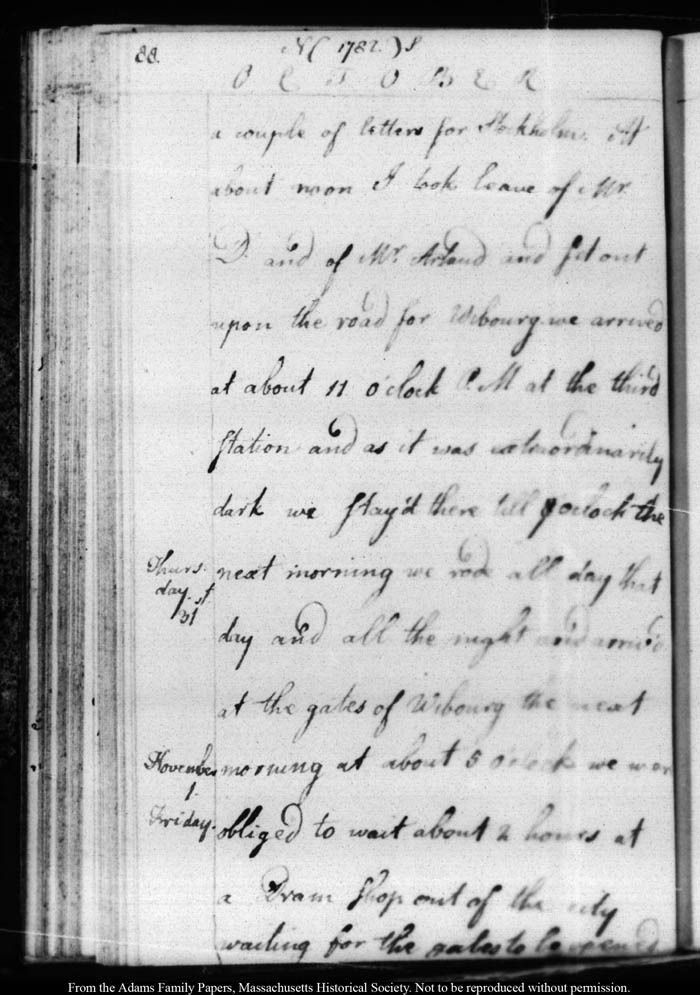 88. N( 1782. )S
O C T O B E R
a couple of letters for Stockholm. At
about noon I took leave of Mr.
D. and of Mr. Artaud and set out
upon the road for Wibourg. we arrived
at about 11 o'clock P.M at the third
station and as it was extraordinarily
dark we stay'd there till o'clock the
Thurs- next morning we rode all day that
day. 31st
day and all the night and arriv'd
at the gates of Wibourg the next
November morning at about 5 o'clock we wer
1.
Friday. obliged to wait about 2 hours at
a Dram shop out of the city
waiting for the gates to be opened
From the Adams Family Papers, Massachusetts Historical Society. Not to be reproduced without permission.